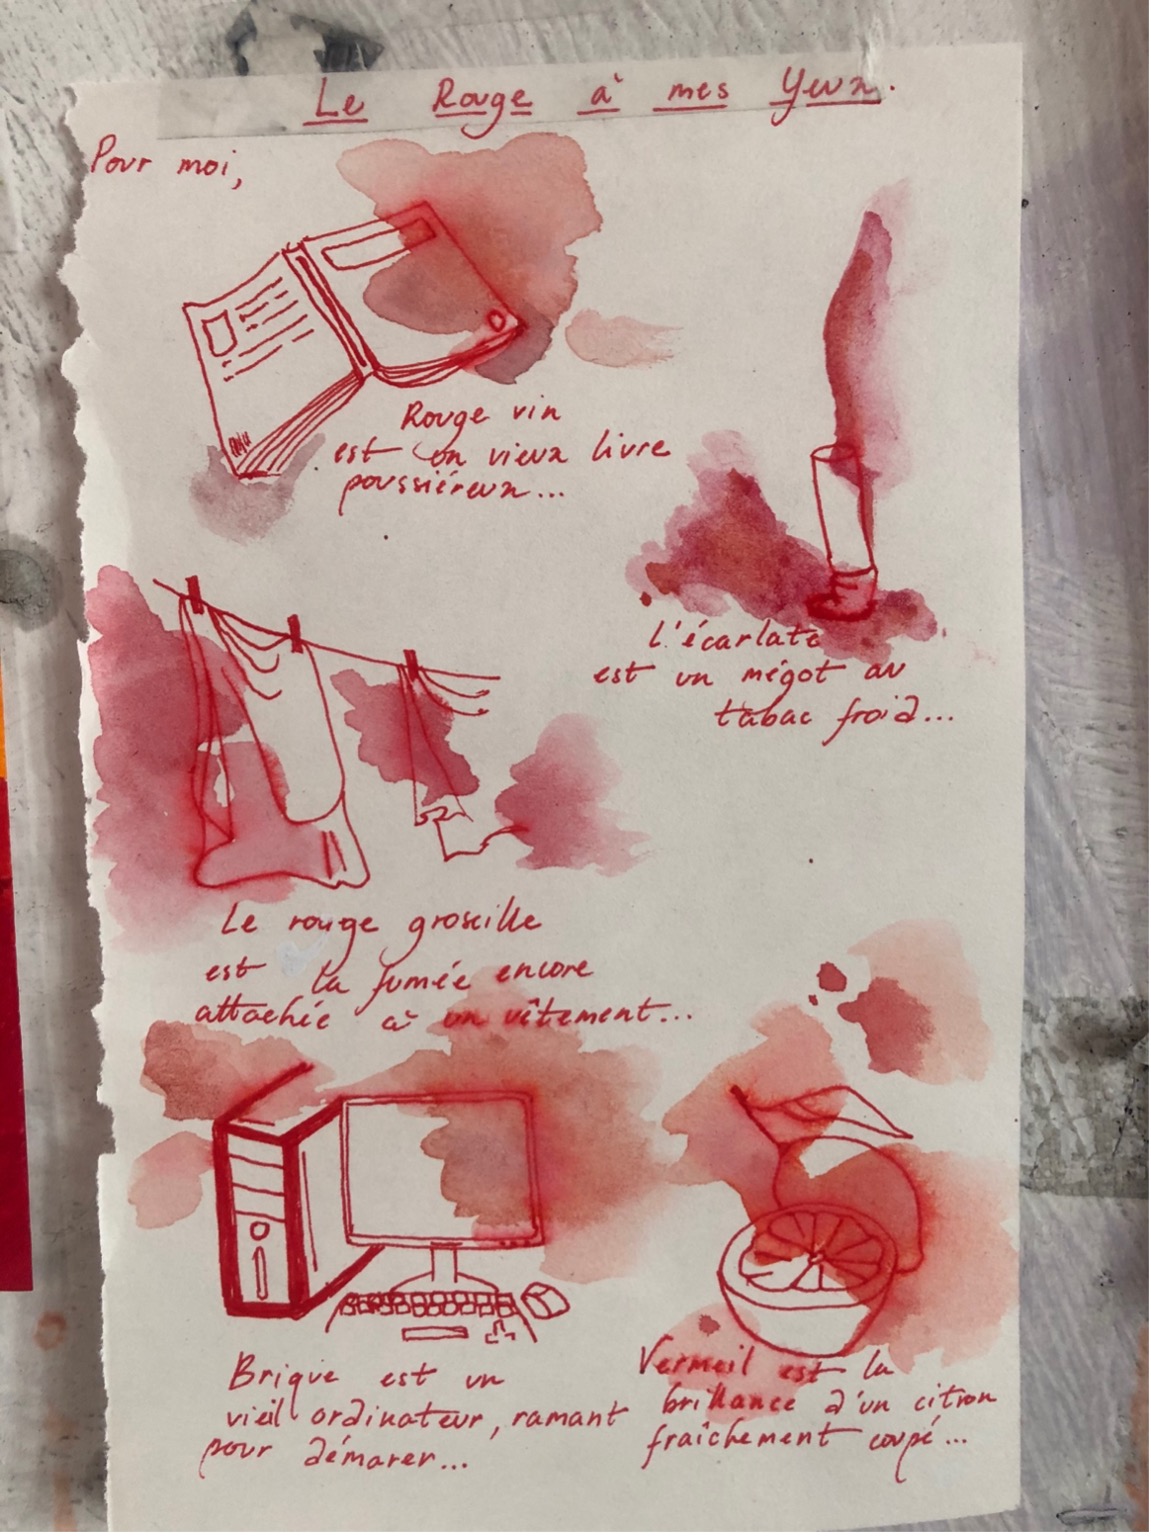 Le Rouge à mes Yeux.
Pour moi,
Rouge vin
est un vieux livre
poussiéreux...
L'écarlate
est un mégot au
tabac froid...
Le rouge groseille
est la fumée encore
attachée à un vêtement...
Brique est un
vieil ordinateur, ramant
pour démarer...
Vermeil est la
brillance d'un citron
fraîchement coupé...